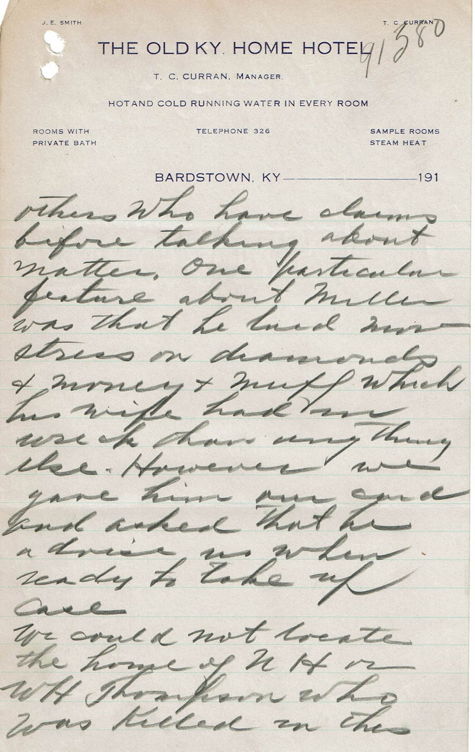 J. E. SMITH
T. C. CURRAN
91380
THE OLD KY. HOME HOTEL
T. C. CURRAN, MANAGER.
HOT AND COLD RUNNING WATER IN EVERY ROOM
ROOMS WITH
PRIVATE BATH
TELEPHONE 326
SAMPLE ROOMS
STEAM HEAT
BARDSTOWN, KY 191
others who have claims
before talking about
matter. One particular
feature about Miller
was that he laed more
stress on diamonds
& money & muff which
his wife had in
wreck than anything
else. However we
gave him our card
and asked that he
advise us when
ready to take up
case
We could not locate
the home of N H or
WH Thompson who
was Killed in this